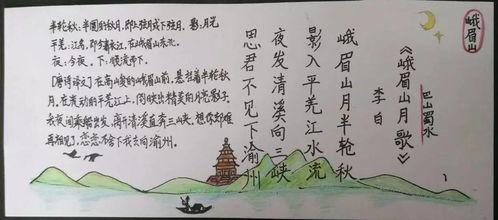 峨眉山
巴山蜀水
《峨眉山月歌》
李白
峨眉山月半轮秋
影入平羌江水流
夜发清溪向三峡
思君不见下渝州
半轮秋:半圆的秋月,即上弦月或下弦月。影:月光
平羌:江名,即今青衣江,在峨眉山东北。
夜:今夜。下:顺流而下。
[唐诗译文]在高峻的峨眉山前,悬挂着半轮秋
月。在流动的平羌江上,倒映出精美的月亮影子。
在夜间乘船出发,离开清溪直奔三峡。想你却难
再相见,恋恋不舍下我去向渝州。